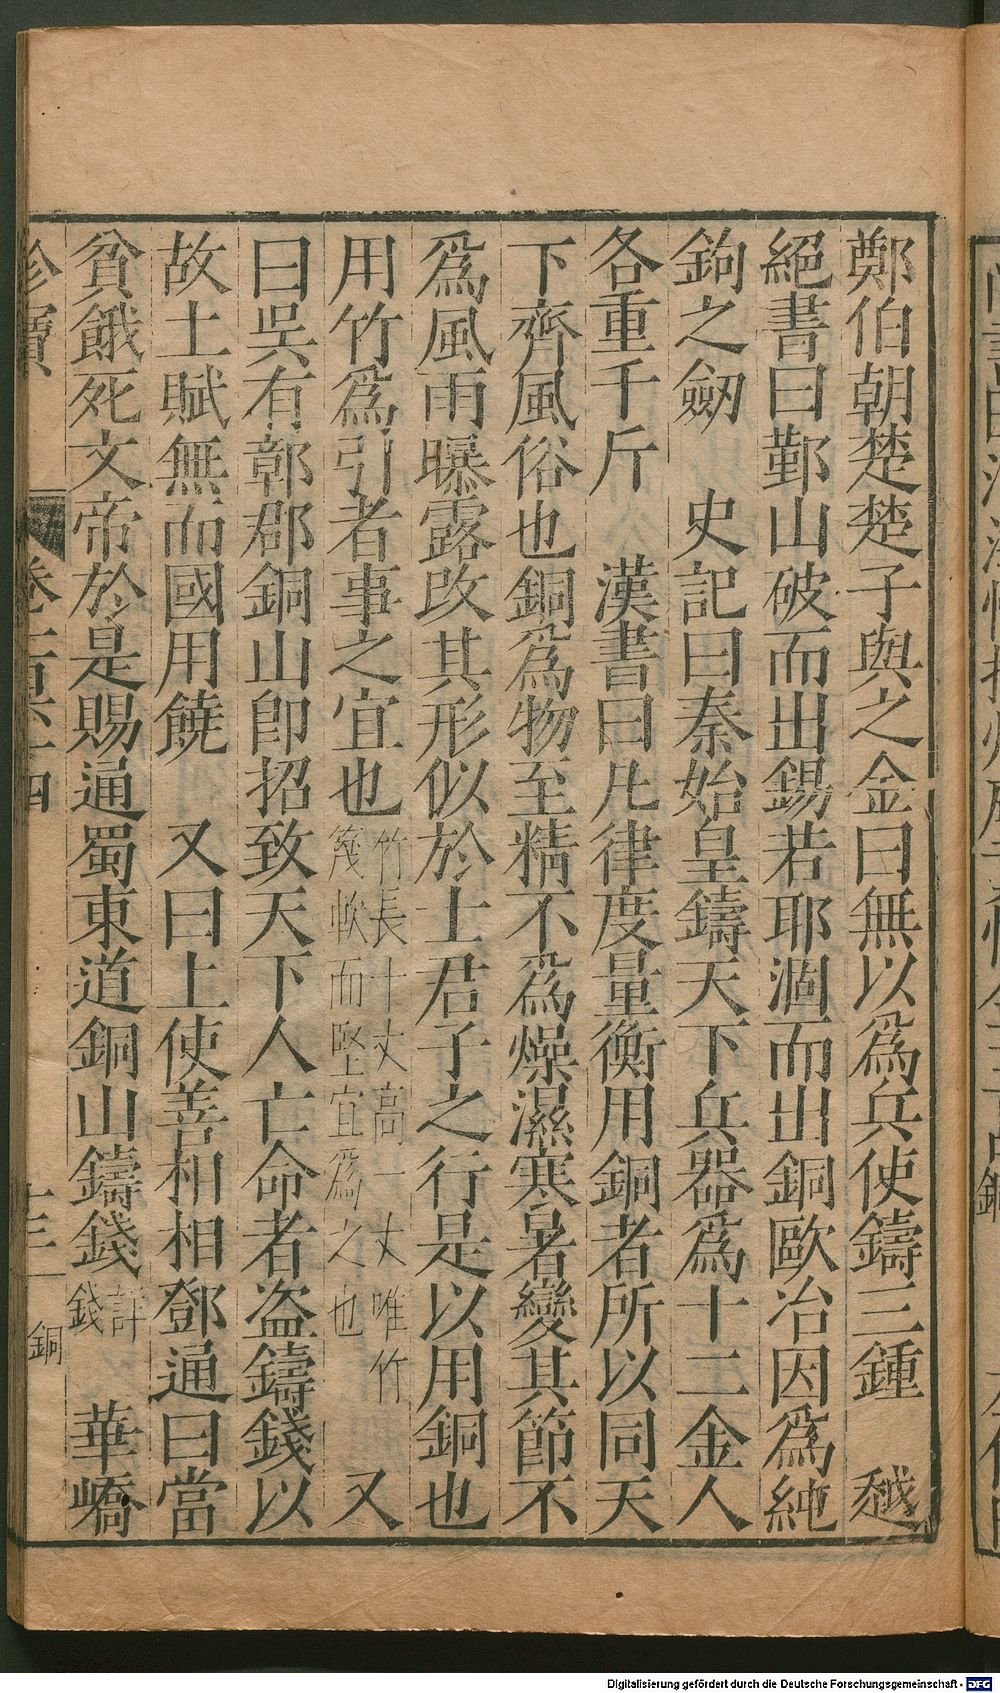 鄭伯朝楚楚子與之金曰無以爲兵使鑄三鍾　越
絕書曰鄞山破而出錫若耶涸而出銅歐冶因爲純
鉤之劒　史記曰秦始皇鑄天下兵器爲十二金人
各重千斤　漢書曰凡律度量衡用銅者所以同天
下齊風俗也銅爲物至精不爲燥濕寒暑變其節不
爲風雨曝露改其形似於士君子之行是以用銅也
用竹爲引者事之宜也竹長十丈高一丈唯竹
篾軟而堅宜爲之也　又
曰吳有鄣郡銅山即招致天下人亡命者盗鑄錢以
故土賦無而國用饒　又曰上使善相相鄧通曰當
貧餓死文帝於是賜通蜀東道銅山鑄錢詳
錢　華嶠
珍寶　卷一百六十四　十三　銅
Digitalisierung gefördert durch die Deutsche Forschungsgemeinschaft - DFG